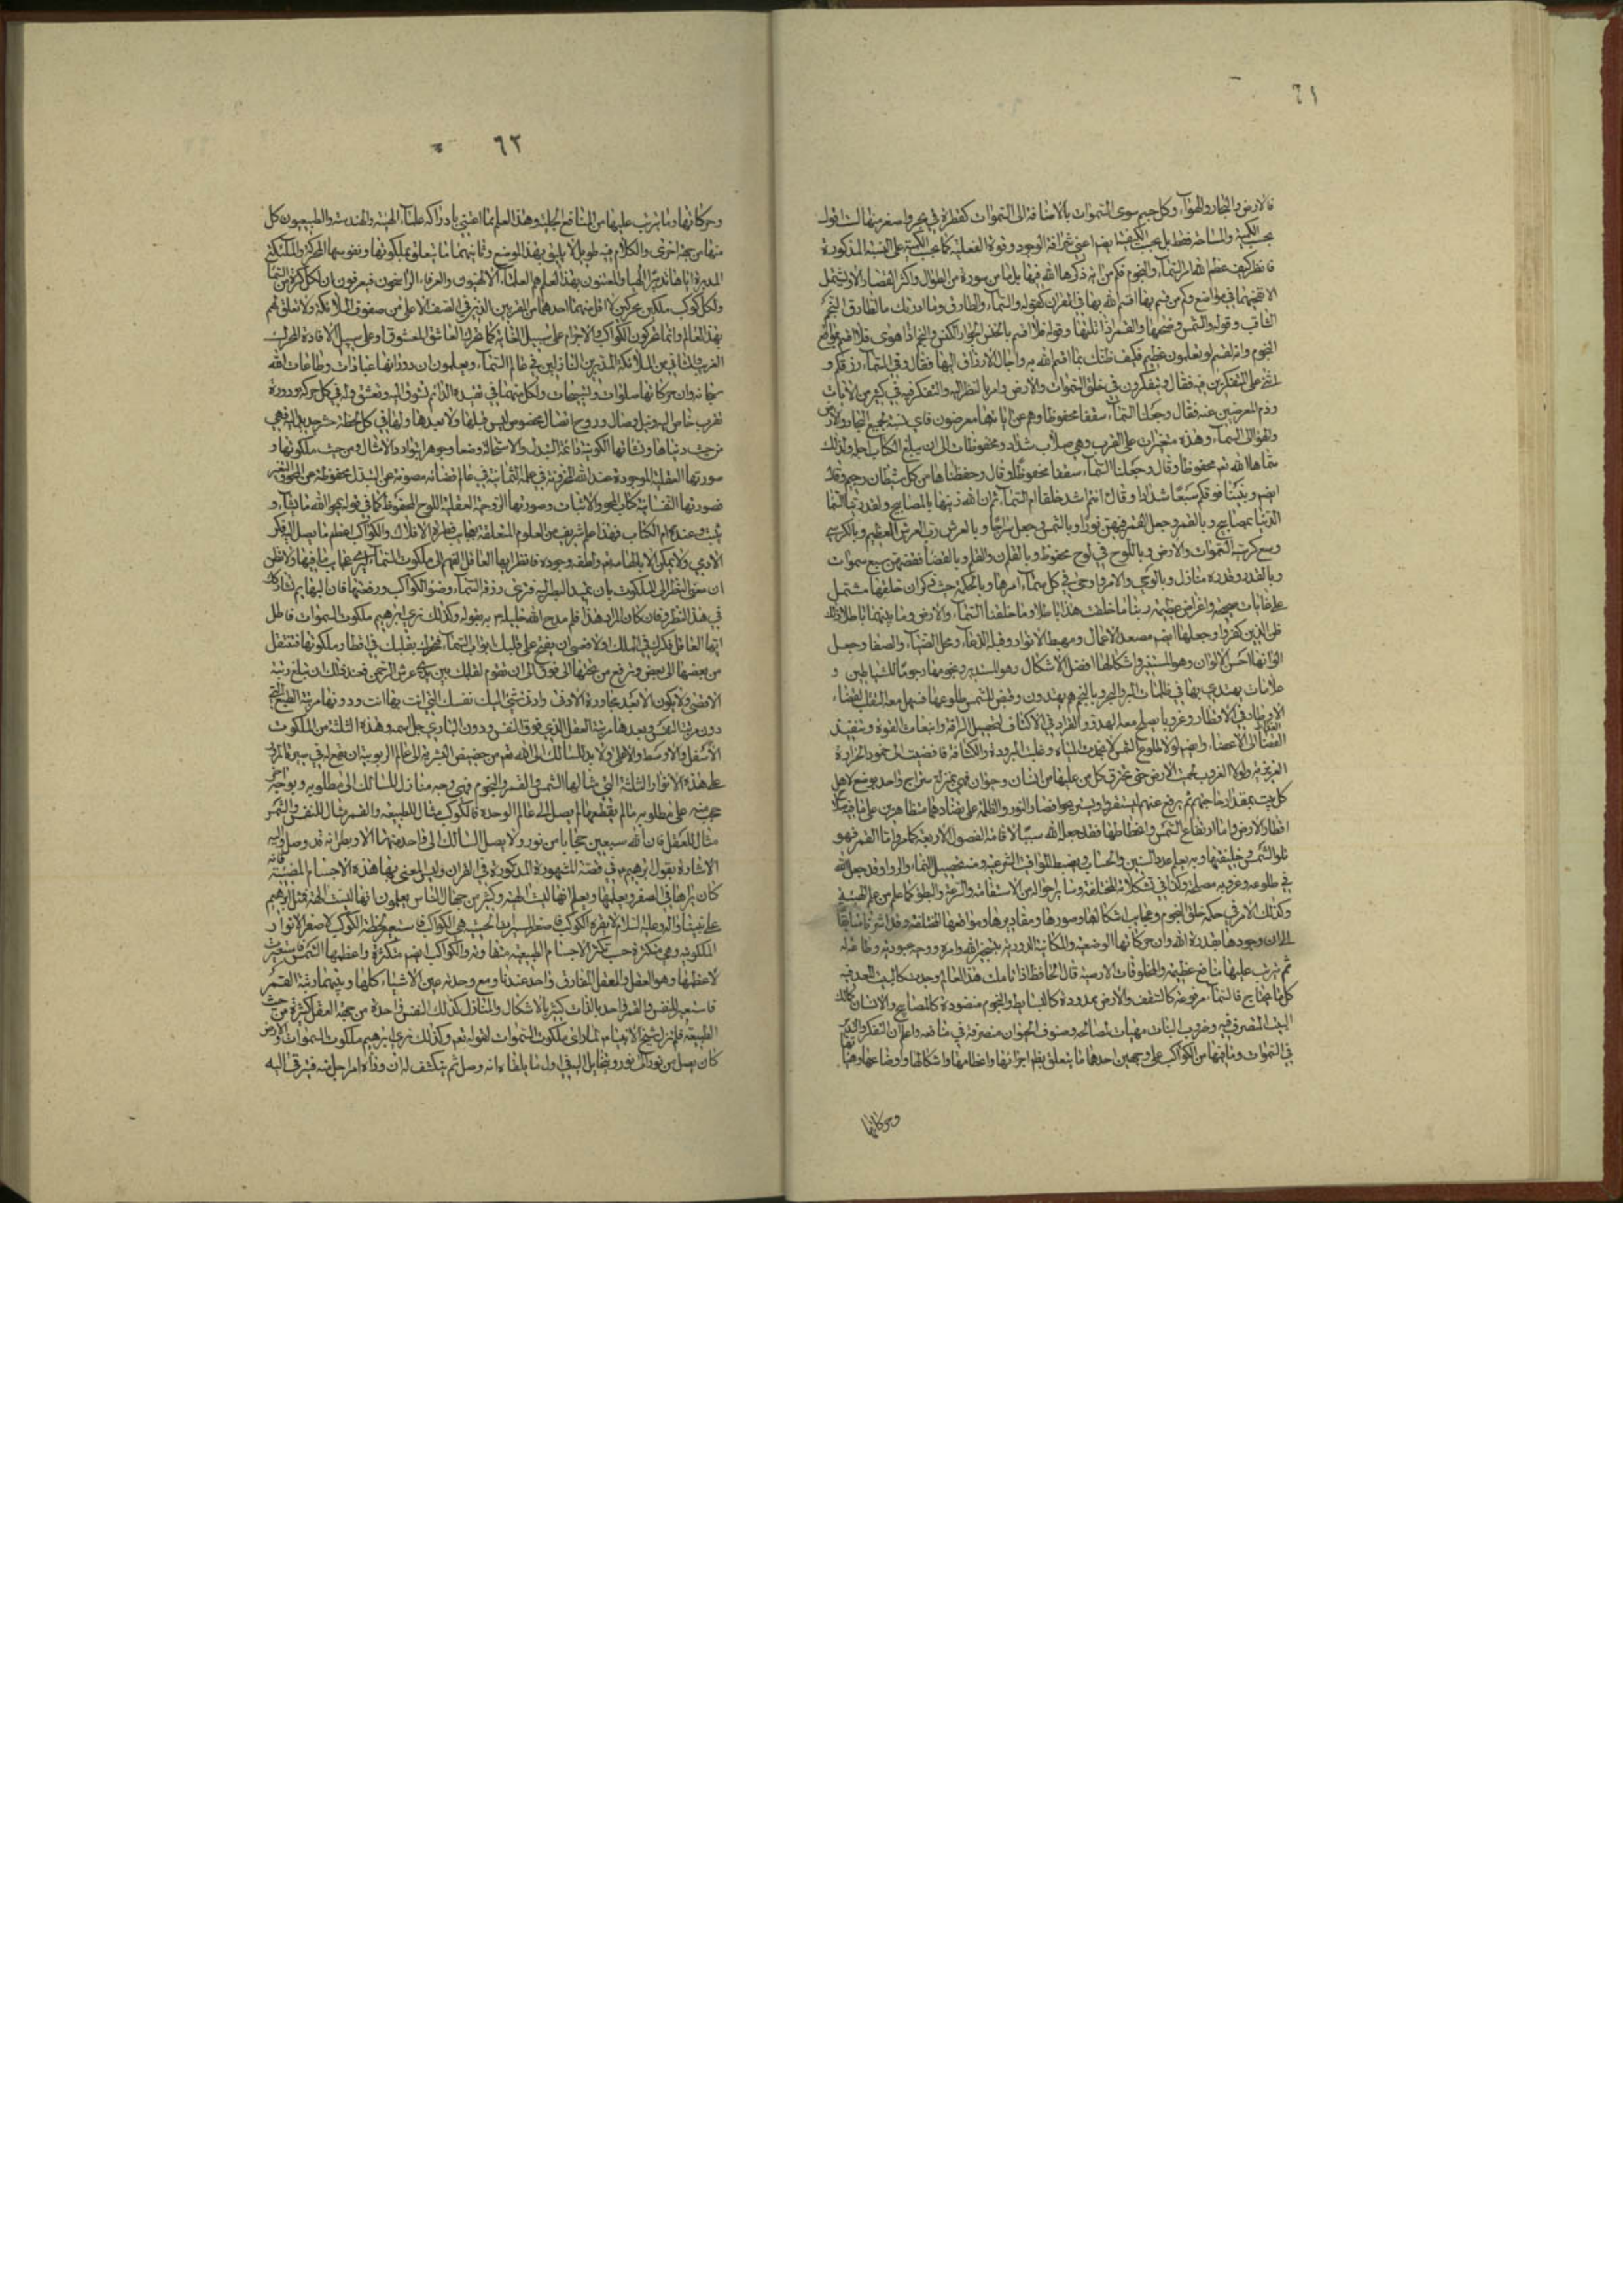 ٦١
فالارض والبحار والهواء وكل جسم سوى السموات بالاضافة الى السموات كقطرة في بحر واصغر منها لست اقول
بحسب الكمية والمساحة فقط بل بحسب الكيفية ايضم اعني شرافة الوجود وقوة الفعلية كما بحسب الكمية على النسبة المذكورة
فانظر كيف عظم الله امر السماء والنجوم فكم من اية ذكرها الله فيها بل ما من سورة من الطوال واكثر القصار الا و تشتمل
الثاقب وقوله والشمس وضحيها والقمر اذا تليها وقوله فلا اقسم بالخنس الجوار الكنس والنجم اذا هوى فلا اقسم بمواقع
النجوم وانه لقسم لو تعلمون عظيم فكيف ظنك بما اقسم الله به واحال الارزاق اليها فقال وفي السماء رزقكم و
اثنى على المتفكرين فيه فقال ويتفكرون في خلق السموات والارض وامر بالنظر اليه والتفكر فيه في كثير من الايات
وذم المعرضين عنه فقال وجعلنا السماء سقفا محفوظا وهم عن اياتها معرضون فاي نسبة لجميع البحار والارض
والهواء الى السماء وهذه متغيرات على القرب وهي صلاب شداد ومحفوظات الى ان يبلغ الكتاب اجله ولذلك
سماها الله تعم محفوظا وقال وجعلنا السماء سقفا محفوظا وقال وحفظناها من كل شيطان رجيم وقال
ايضم وبنينا فوقكم سبعا شدادا وقال ءانتم اشد خلقا ام السماء ثم ان الله زينها بالمصابيح ولقد زينا السماء
الدنيا بمصابيح وبالقمر وجعل القمر فيهن نورا وبالشمس وجعل سراجا وبالعرش رب العرش العظيم وبالكرسي
وسع كرسيه السموات والارض وباللوح في لوح محفوظ وبالقلم ن والقلم وبالقضاء فقضيهن سبع سموات
وبالقدر وقدره منازل وبالوحي والامر واوحى في كل سماء امرها وبالحكمة حيث ذكر ان خلقها مشتمل
على غايات صحيحة واغراض عظيمة ربنا ما خلقت هذا باطلا وما خلقنا السماء والارض وما بينهما باطلا ذلك
ظن الذين كفروا وجعلها ايضم مصعد الاعمال ومهبط الانوار وقبلة الدعاء ومحل الضياء والصفا وجعل
الوانها احسن الالوان وهو المستنير واشكالها افضل الاشكال وهو المستدير ونجومها رجوما للشياطين و
علامات يهتدى بها في ظلمات البر والبحر وبالنجم هم يهتدون وقيض للشمس طلوعا فسهل معه التقلب لقضاء
الاوطار في الاقطار وغروبا يصلح معه الهدو والقرار في الاكناف لتحصيل الراحة وانبعاث القوة وتنفيذ
الغذاء الى الاعضاء وايضم لولا الطلوع لانجمدت المياه وغلبت البرودة والكثافة فافضت الى خمود الحرارة
الغريزية ولولا الغروب لحميت الارض حتى تحترق كل من عليها من انسان وحيوان فهي بمنزلة سراج واحد يوضع لاهل
كل بيت بمقدار حاجتهم ثم يرفع عنهم ليستقروا ويستريحوا فصار النور والظلمة على تضادهما متظاهرين على ما فيه صلاح
اقطار الارض واما ارتفاع الشمس وانحطاطها فقد جعله الله سببا لاقامة الفصول الاربعة كما مر واما القمر فهو
تلو الشمس وخليفتها وبه يعلم عدد السنين والحساب ويضبط المواقيت الشرعية ومنه تحصيل النماء والرواء وقد جعل الله
في طلوعه وغروبه مصلحة وكذا في تشكلاته المختلفة وسائر احواله من الاستقامة والسرعة والبطؤ كما علم من علم الهيئة
وكذلك الامر في حكمة خلق النجوم وعجايب اشكالها وصورها ومقاديرها ومواضعها المختلفة وقد اشرنا سابقا
الى ان وجودها بقدرة الله وان حركاتها الوضعية والمكانية الدورية بتسخير الله وامره ووجه عبوديته وطاعة له
ثم يترتب عليها منافع عظيمة والمخلوقات الارضية قال الجاحظ اذا تاملت هذا العالم وجدته كالبيت المعد فيه
كل ما يحتاج اليه فالسماء مرفوعة كالسقف والارض ممدودة كالبساط والنجوم منضودة كالمصابيح والانسان كمالك
البيت المتصرف فيه وضروب النبات مهيات لمصالحه وصنوف الحيوان متصرفة في منافعه واعلم ان التفكر والتدبر
في السموات وما فيها من الكواكب على وجهين احدهما ما يتعلق بنظم اجزائها واعظامها واشكالها واوضاعها وهيئاتها
وحركاتها
٦٢
وحركاتها وما يترتب عليها من المنافع الجليلة وهذا العلم مما اعتنى بادراكه علماء الهيئة والهندسة والطبيعيون كل
منها من جهة اخرى والكلام فيه طويل لا يليق بهذا الموضع وثانيهما ما يتعلق بملكوتها ونفوسها المحركة والملائكة
المدبرة اياها تدبيرا الهيا والمعتنون بهذا العلم هم العلماء الالهيون والعرفاء الراسخون فيعرفون ان لكل كرة من السماء
ولكل كوكب ملكين محركين لا اقل منهما احدهما من المقربين الذين في الصف الاعلى من صفوف الملائكة ولا تعلق لهم
بهذا العالم وانما يحركون الكواكب والاجرام على سبيل الغاية كما يحرك المعشوق العاشق وعلى سبيل الافادة المحرك
القريب والثاني من الملائكة المدبرين النازلين في عالم السماء ويعلمون ان دوراتها عبادات وطاعات لله
سبحانه وان حركاتها صلوات وتسبيحات
تقرب خاص اليه ونيل وصال وروح اتصال مخصوص ليس قبلها ولا بعدها ولها في كل لحظة حشر جديد اليه فهي
من حيث دنياها ونشأتها الكونية دائمة التبدل والاستحالة وضعا وجوهرا بتوارد الامثال ومن حيث ملكوتها و
صورتها العقلية الموجودة عند الله المخزونة في عالم قضائه مصونة عن التبدل محفوظة عن المحو والتغير
فصورتها النفسانية كتاب المحو والاثبات وصورتها الروحية العقلية اللوح المحفوظ كما في قوله يمحو الله ما يشاء و
يثبت وعنده ام الكتاب فهذا علم شريف من العلوم المتعلقة بعجايب فطرة الافلاك والكواكب اعظم ما يصل اليه فكر
الادمي فانظر ايها العاقل الفهم الى ملكوت السماء لترى عجايب ما فيها ولا تظن
ان معنى النظر الى الملكوت بان تمد البصر اليه فترى زرقة السماء وضوء الكواكب ورفعتها فان البهايم تشاركك
في هذا النظر وفان كان المراد هذا فلم مدح الله خليله بقوله وكذلك نري ابرهيم ملكوت السموات فاطل
ايها العاقل فكرك في الملك ولا فعسى ان يفتح على قلبك ابواب السماء فتحول بقلبك في اقطار ملكوتها فتنتقل
من بعضها الى بعض وترتفع من تحتها الى فوق الى ان تقوم لقلبك بين يدي عرش الرحمن فعند ذلك ان تبلغ رتبة
الاقصى ولا يكون الا بعد مجاوزة الادنى وادنى شيء اليك نفسك التي انت بها انت ودونها مرتبة الطبع التي
دون مرتبة النفس وبعدها مرتبة العقل الذي فوق النفس ودون الباري جل اسمه وهذه الثلثة من الملكوت
الاسفل والاوسط والاعلى ولا بد للسالك الى الله تعم من حضيض البشرية الى عالم الربوبية ان يقع له في سيره المرور
على هذه الانوار الثلثة التي مثالها الشمس والقمر والنجوم فهي بوجه منازل للسالك الى مطلوبه وبوجه اخر
حجب على مطلوبه ما لم يقطعها لم يصل الى عالم الوحدة فالكوكب مثال للطبيعة والقمر مثال للنفس والشمس
مثال للعقل فان لله سبعين حجابا من نور ولا يصل السالك الى واحد منها الا ويظن انه قد وصل واليه
الاشارة بقول ابرهيم في قصته المشهورة المذكورة في القران وليس المعني بها هذه الاجسام المضيئة فانه
كان يراها في الصغر ويعلمها ويعلم انها ليست الهة وكثير من جهال الناس يعلمون انها ليست الهة فمثل ابرهيم
على نبينا واله وعليه السلام لا يغره الكوكب
الملكوتية وهي متكثرة حسب تكثر الاجسام الطبيعية متفاوتة والكواكب ايضم متكثرة واعظمها الشمس فاستعيرت
لاعظمها وهو العقل والعقل المفارق واحد عندنا ومع وحدته عين الاشياء كلها وبينهما رتبة القمر
فاستعير للنفس والقمر واحد بالذات كثير بالاشكال والمنازل كذلك النفس واحدة من جهة العقل كثيرة من حيث
الطبيعة فلم يزل شيخ الانبياء لما راى ملكوت السموات لقوله تعم وكذلك نري ابرهيم ملكوت السموات والارض
كان يصل من نور الى نور ويتخايل اليه في اول ما يلقاه انه وصل ثم ينكشف له ان وراءه امر اجل منه فيترقى اليه